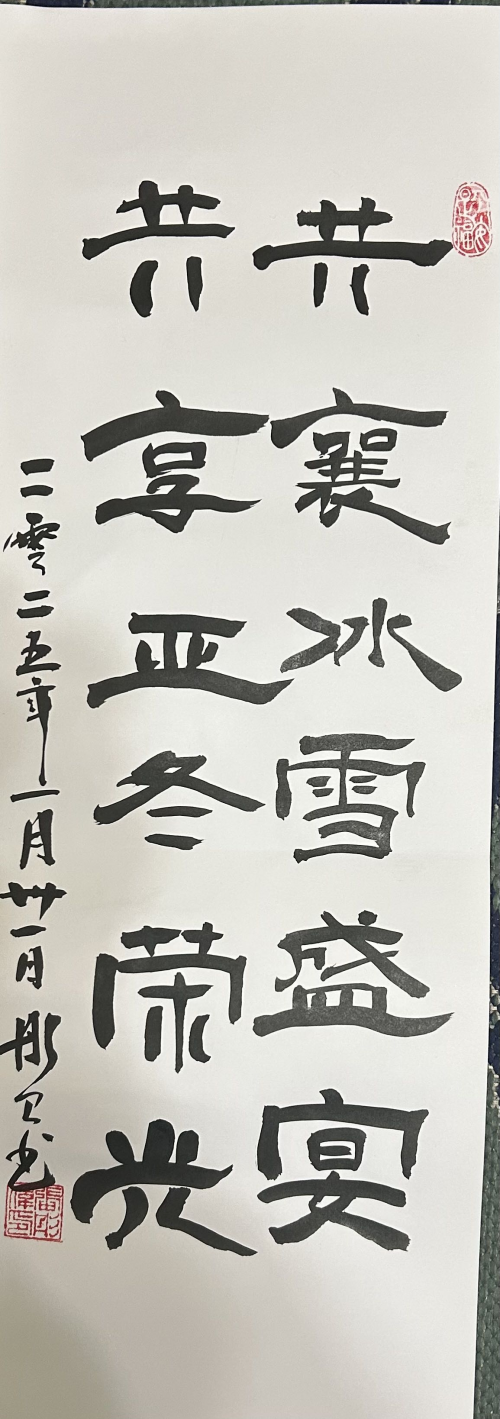 共襄冰雪盛宴
共享亚冬荣光
二零二五年一月卅一日彤